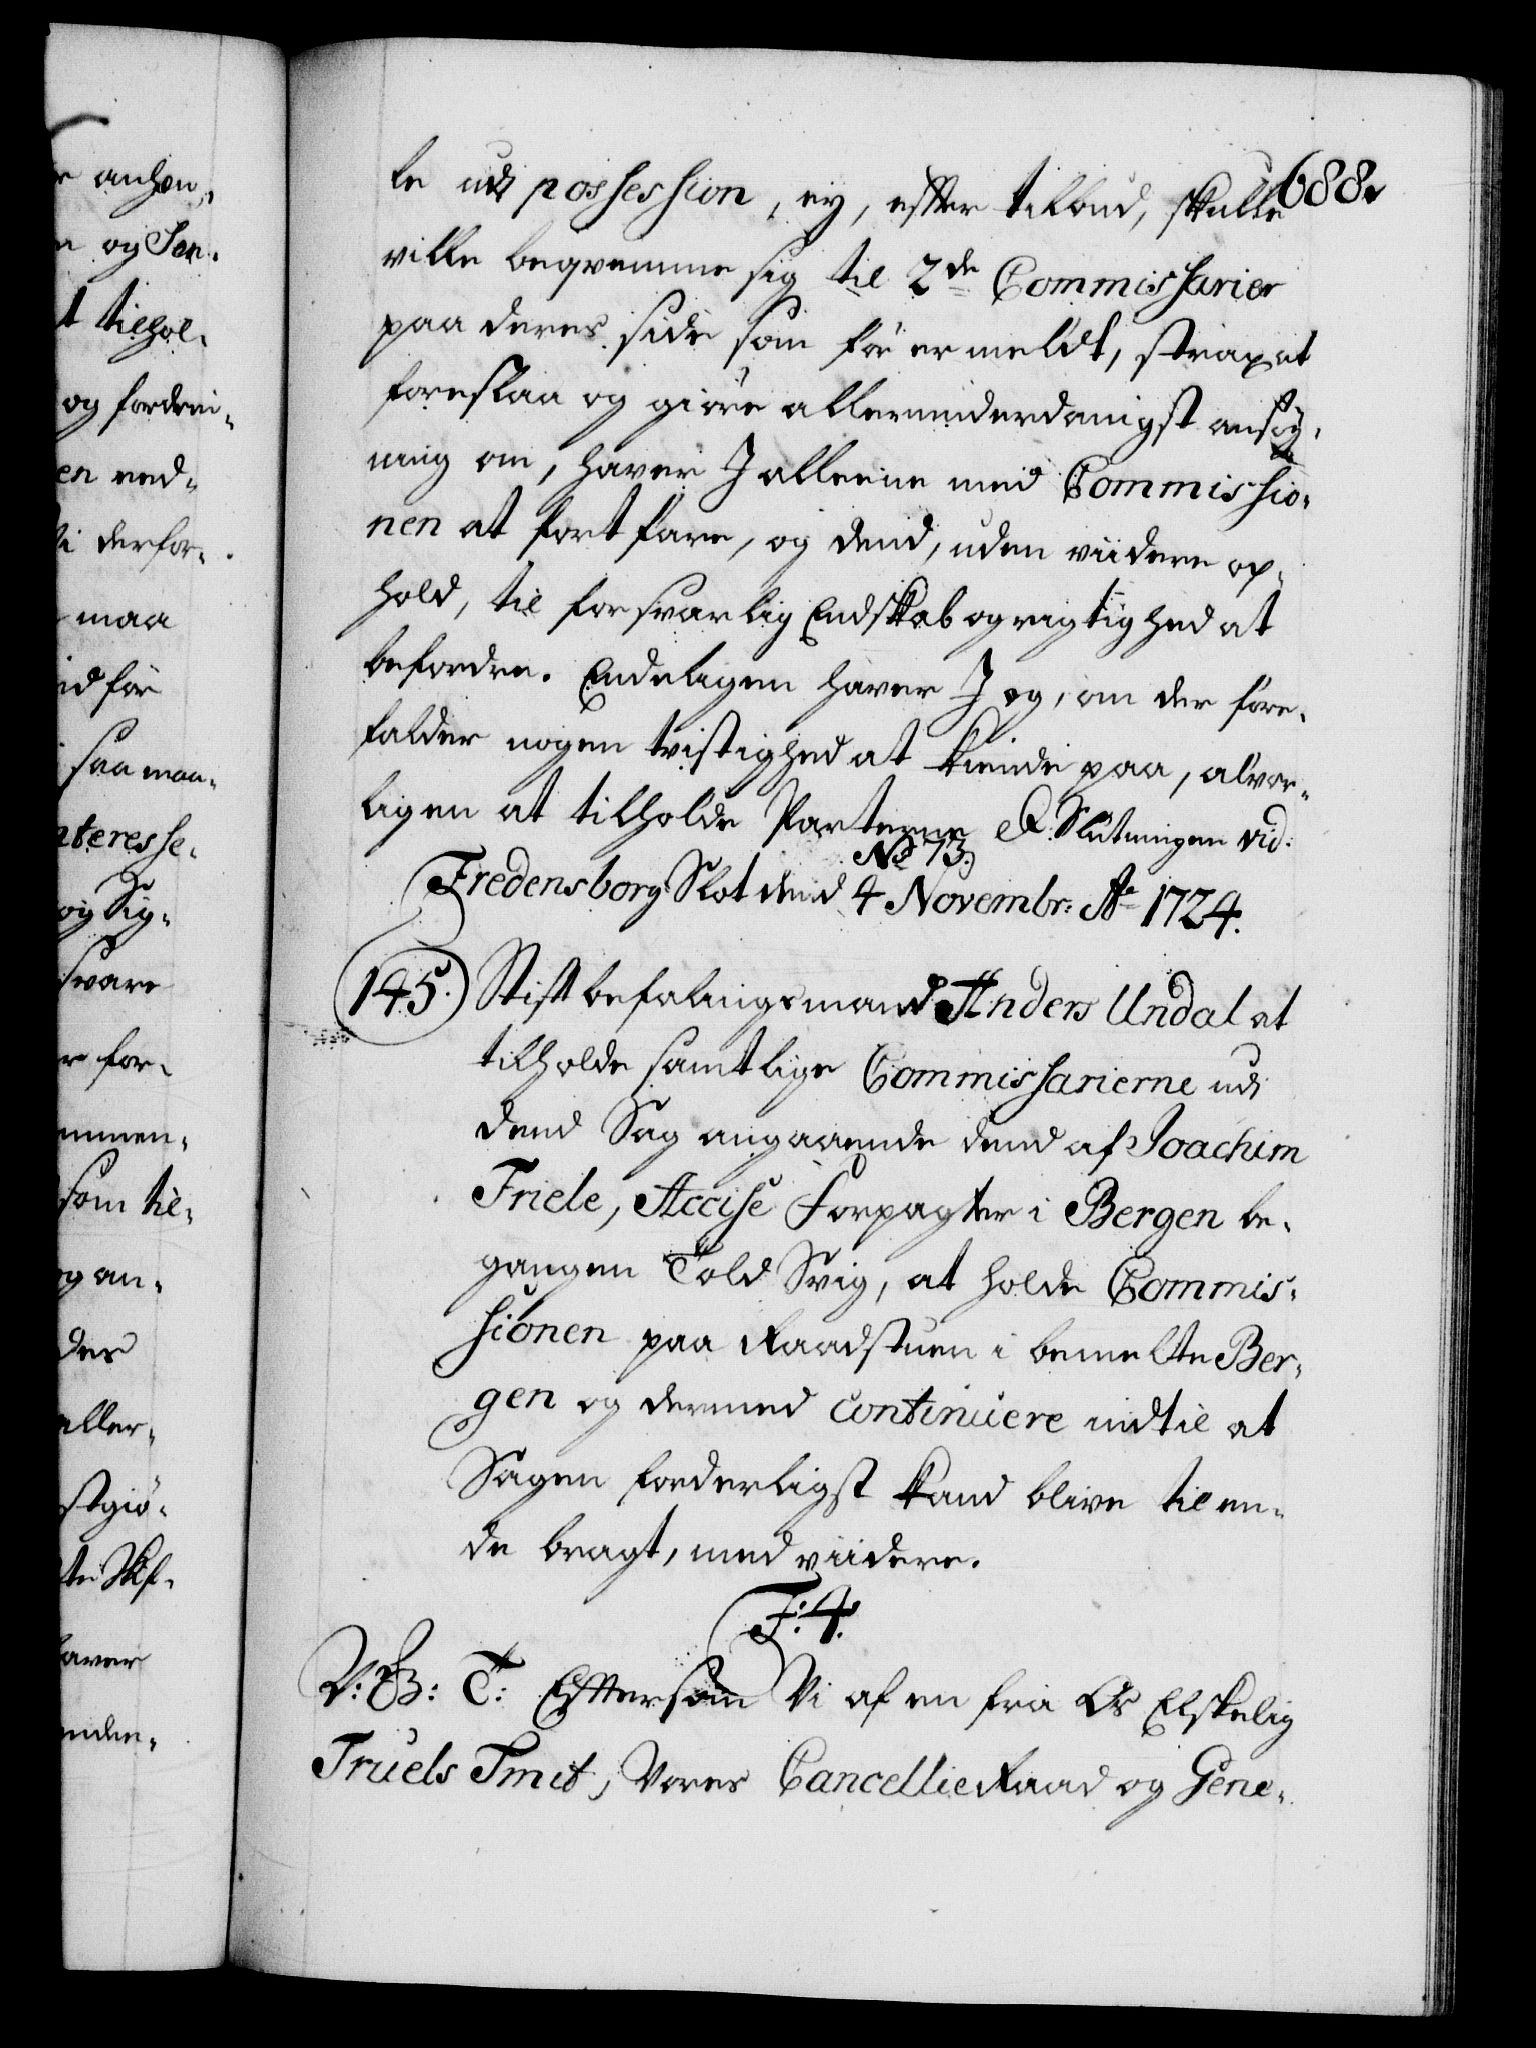 688.
le udi possession, ey, efter tilbud, skulle
ville beqvemme sig til 2de Commissarier
paa deres side som før er meldt, strax at
foreslaa og giøre allerunderdanigst ansøg-
ning om, haver I alleene med Commissio-
nen at fortfare, og dend, uden viidere op-
hold, til forsvarlig Endskab og rigtighed at
befordre. Endeligen haver I og, om der fore-
falder nogen tvistighed at kiende paa, alvor-
ligen at tilholde Parterne &. Slutningen vid:
No 73.
Fredensborg Slot dend 4 Novembr: Ao 1724.
145. Stiftbefalingsmand Anders Undal at
tilholde samtlige Commissarierne udi
dend Sag angaaende dend af Joachim
Friele, Accise Forpagter i Bergen be-
gangen Told Svig, at holde Commis-
sionen paa Raadstuen i bemelte Ber-
gen og dermed continuere indtil at
Sagen forderligst kand blive til en-
de bragt, med viidere.
F: 4.
V: G: T: Eftersom Vi af en fra Os Elskelig
Truels Smit, Vores Cancellie Raad og Gene-
anhøn-
og Sen-
t tilhol-
og fordrin-
en ved-
Vi derfor-
maa
id før
saa maa-
nteresse-
og Sig-
svare
r for-
mmen-
som til-
og an-
des
aller-
stgiø-
haver